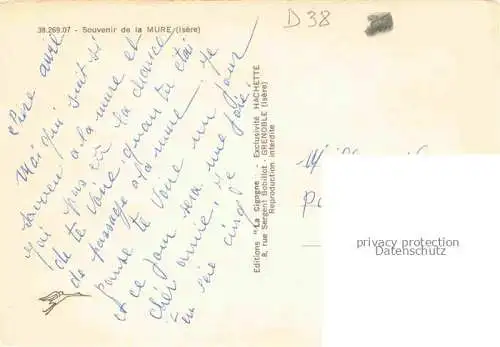 38.269.07 - Souvenir de la MURE (Isère)
D38
chère amie
Moi qui suit si
souven a la mure et
j'ai pas eu la chance
de te voire quan tu étai
de passage a la mure. je
pense te voire un jour
et ce jour sera une joie
cher amie, je
Editions "La Cigogne - Exclusivité HACHETTE
8, rue Sergent Bobillot - GRENOBLE (Isère)
Reproduction interdite
privacy protection
Datenschutz